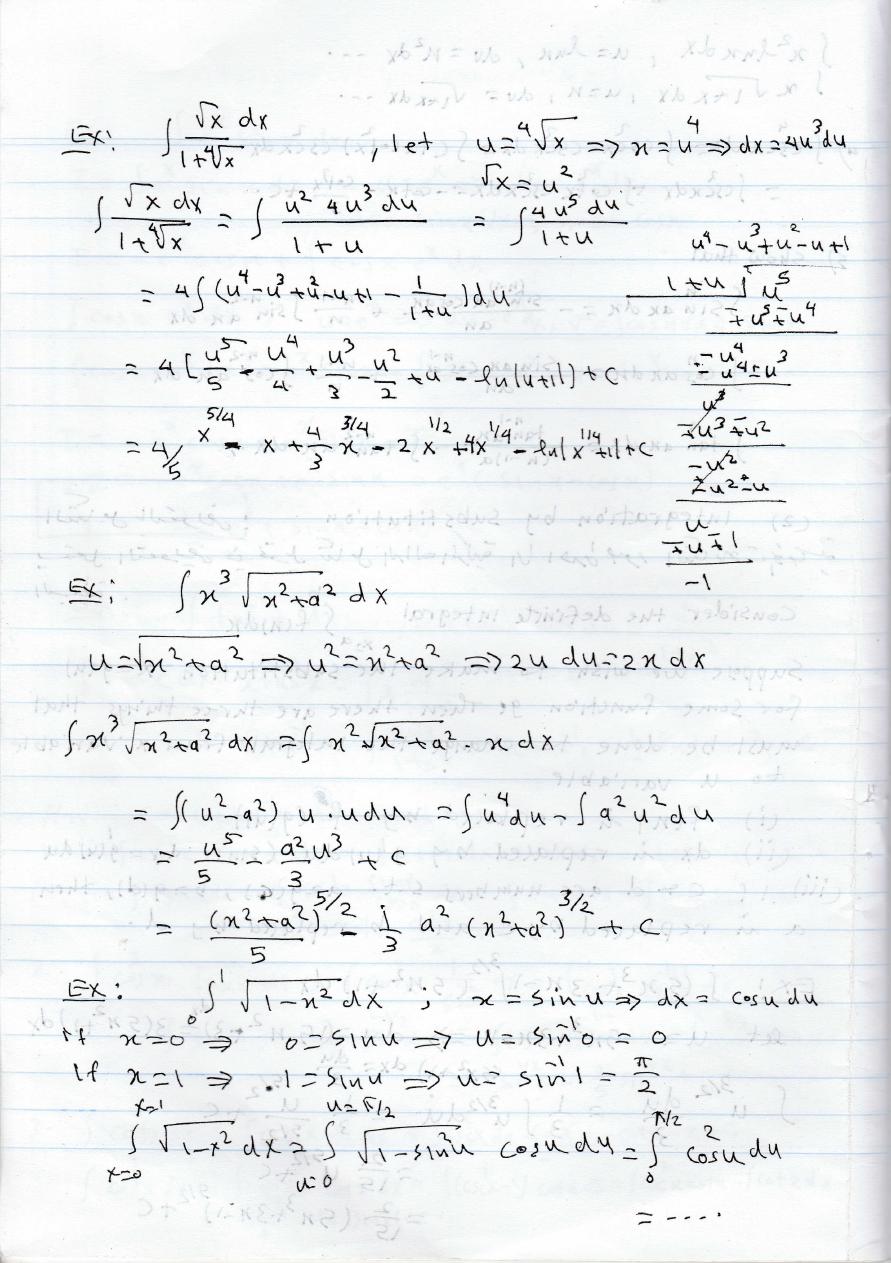 Ex: ∫ √x dx / (1+∜x) , let u = ∜x ⇒ x = u⁴ ⇒ dx = 4u³du
√x = u²
∫ √x dx / (1+∜x) = ∫ u² 4u³ du / (1+u) = ∫ 4u⁵ du / (1+u)
= 4∫(u⁴-u³+u²-u+1 - 1/(1+u))du
= 4[u⁵/5 - u⁴/4 + u³/3 - u²/2 + u - ln|u+1|] + C
= 4/5 x^(5/4) - x + 4/3 x^(3/4) - 2x^(1/2) + 4x^(1/4) - ln|x^(1/4)+1| + C
u⁴-u³+u²-u+1
1+u √ u⁵
∓u⁵∓u⁴
-u⁴
±u⁴±u³
u³
∓u³∓u²
-u²
±u²±u
u
∓u∓1
-1
Ex: ∫ x³ √(x²+a²) dx
u = √(x²+a²) ⇒ u² = x²+a² ⇒ 2u du = 2x dx
∫ x³ √(x²+a²) dx = ∫ x² √(x²+a²) · x dx
= ∫(u²-a²) u · u du = ∫u⁴du - ∫a²u²du
= u⁵/5 - a²/3 u³ + C
= (x²+a²)^(5/2)/5 - 1/3 a² (x²+a²)^(3/2) + C
Ex: ∫₀¹ √(1-x²) dx ; x = sin u ⇒ dx = cosu du
If x=0 ⇒ 0 = sinu ⇒ u = sin⁻¹0 = 0
If x=1 ⇒ 1 = sinu ⇒ u = sin⁻¹1 = π/2
∫_{x=0}^{x=1} √(1-x²) dx = ∫_{u=0}^{u=π/2} √(1-sin²u) cosu du = ∫₀^{π/2} cos²u du
= ....